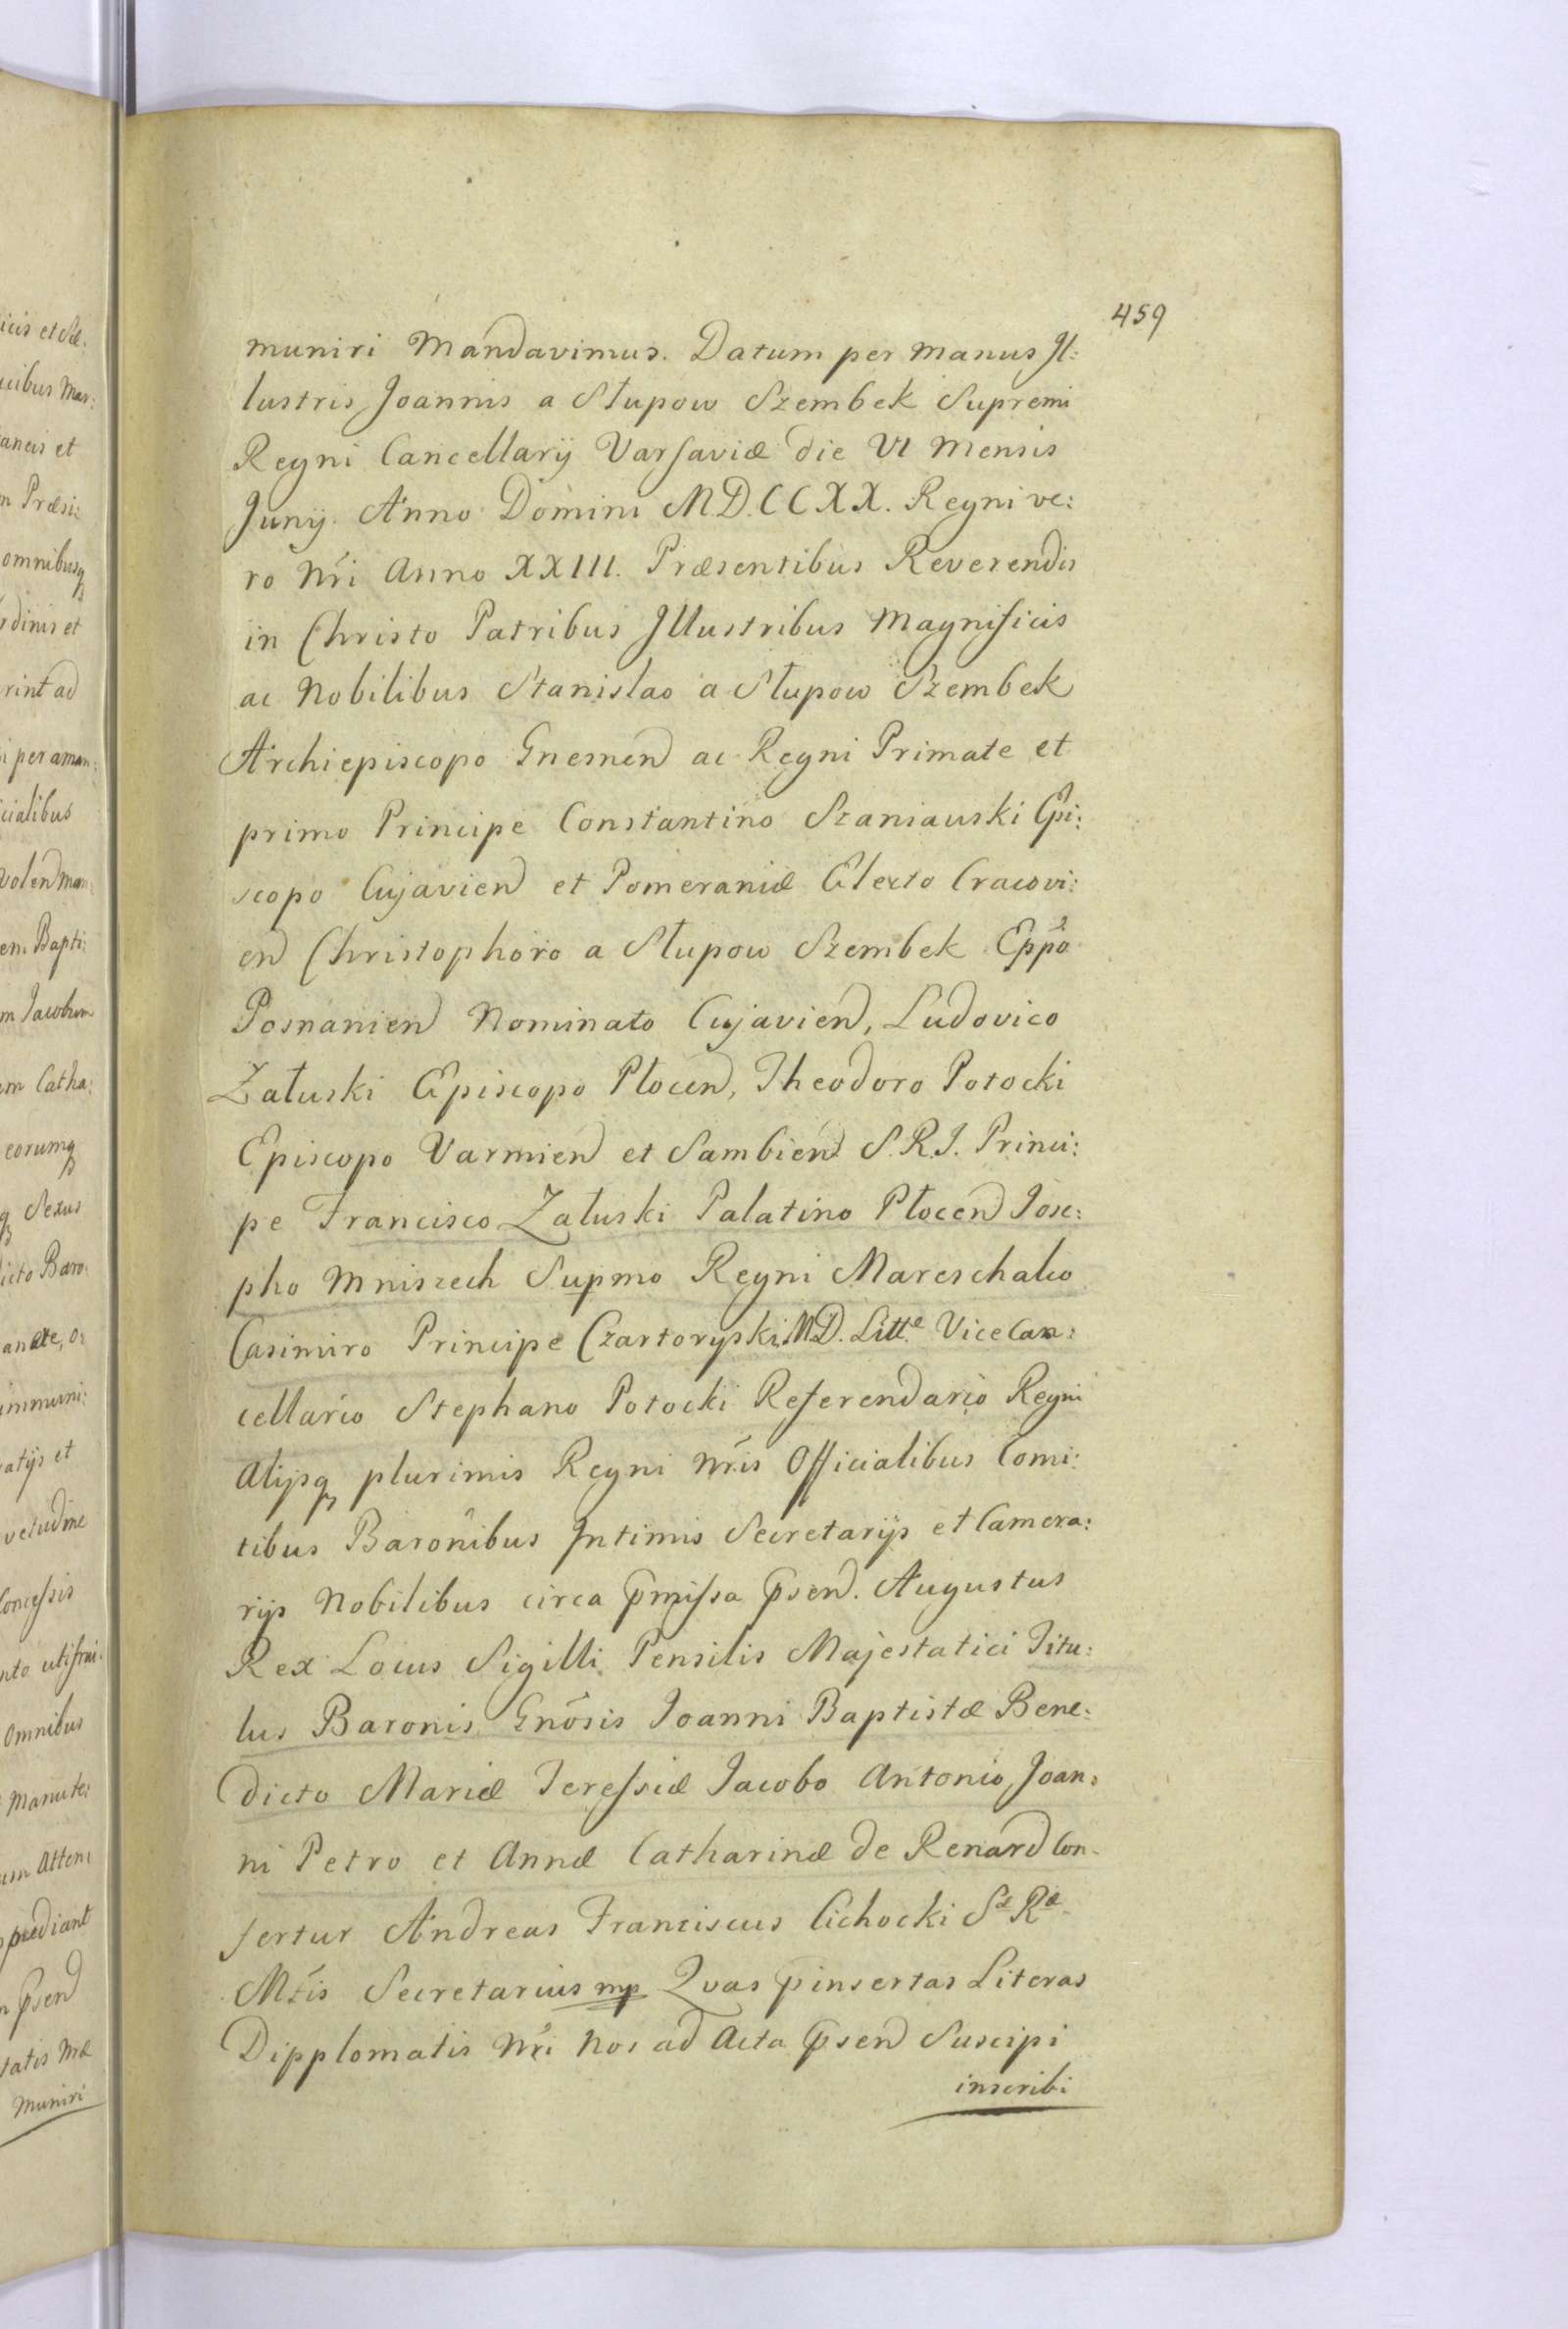 459
muniri Mandavimus. Datum per manus Il:
lustris Joannis a Słupow Szembek Supremi
Regni Cancellarij Varsaviæ die VI Mensis
Junij Anno Domini M.D.CCXX. Regni ve:
ro Nri Anno XXIII. Præsentibus Reverendis
in Christo Patribus Illustribus Magnificis
ac Nobilibus Stanislao a Słupow Szembek
Archiepiscopo Gnesnen ac Regni Primate et
primo Principe Constantino Szaniauski Epi:
scopo Cujavien et Pomeraniæ Electo Cracovi:
en Christophoro a Słupow Szembek Eppo
Posnanien Nominato Cujavien, Ludovico
Załuski Episcopo Płocen, Theodoro Potocki
Episcopo Varmien et Sambien S.R.I. Princi:
pe Francisco Załuski Palatino Płocen Jose:
pho Mniszech Supmo Regni Mareschalco
Casimiro Principe Czartoryski M.D. Litt.e Vice Can:
cellario Stephano Potocki Referendario Regni
Alijsq plurimis Regni Nris Officialibus Comi:
tibus Baronibus Intimis Secretarijs et Camera:
rijs Nobilibus circa pmissa psen. Augustus
Rex Locus Sigilli Pensilis Majestatici Titu:
lus Baronis Gnosis Joanni Baptistæ Bene:
dicto Mariæ Teressiæ Jacobo Antonio Joan:
ni Petro et Annæ Catharinæ de Renard Con-
fertur Andreas Franciscus Cichocki Sæ Ræ
Mtis Secretarius mp Quas pinsertas Literas
Dipplomatis Nri Nos ad Acta psen Suscipi
inscribi